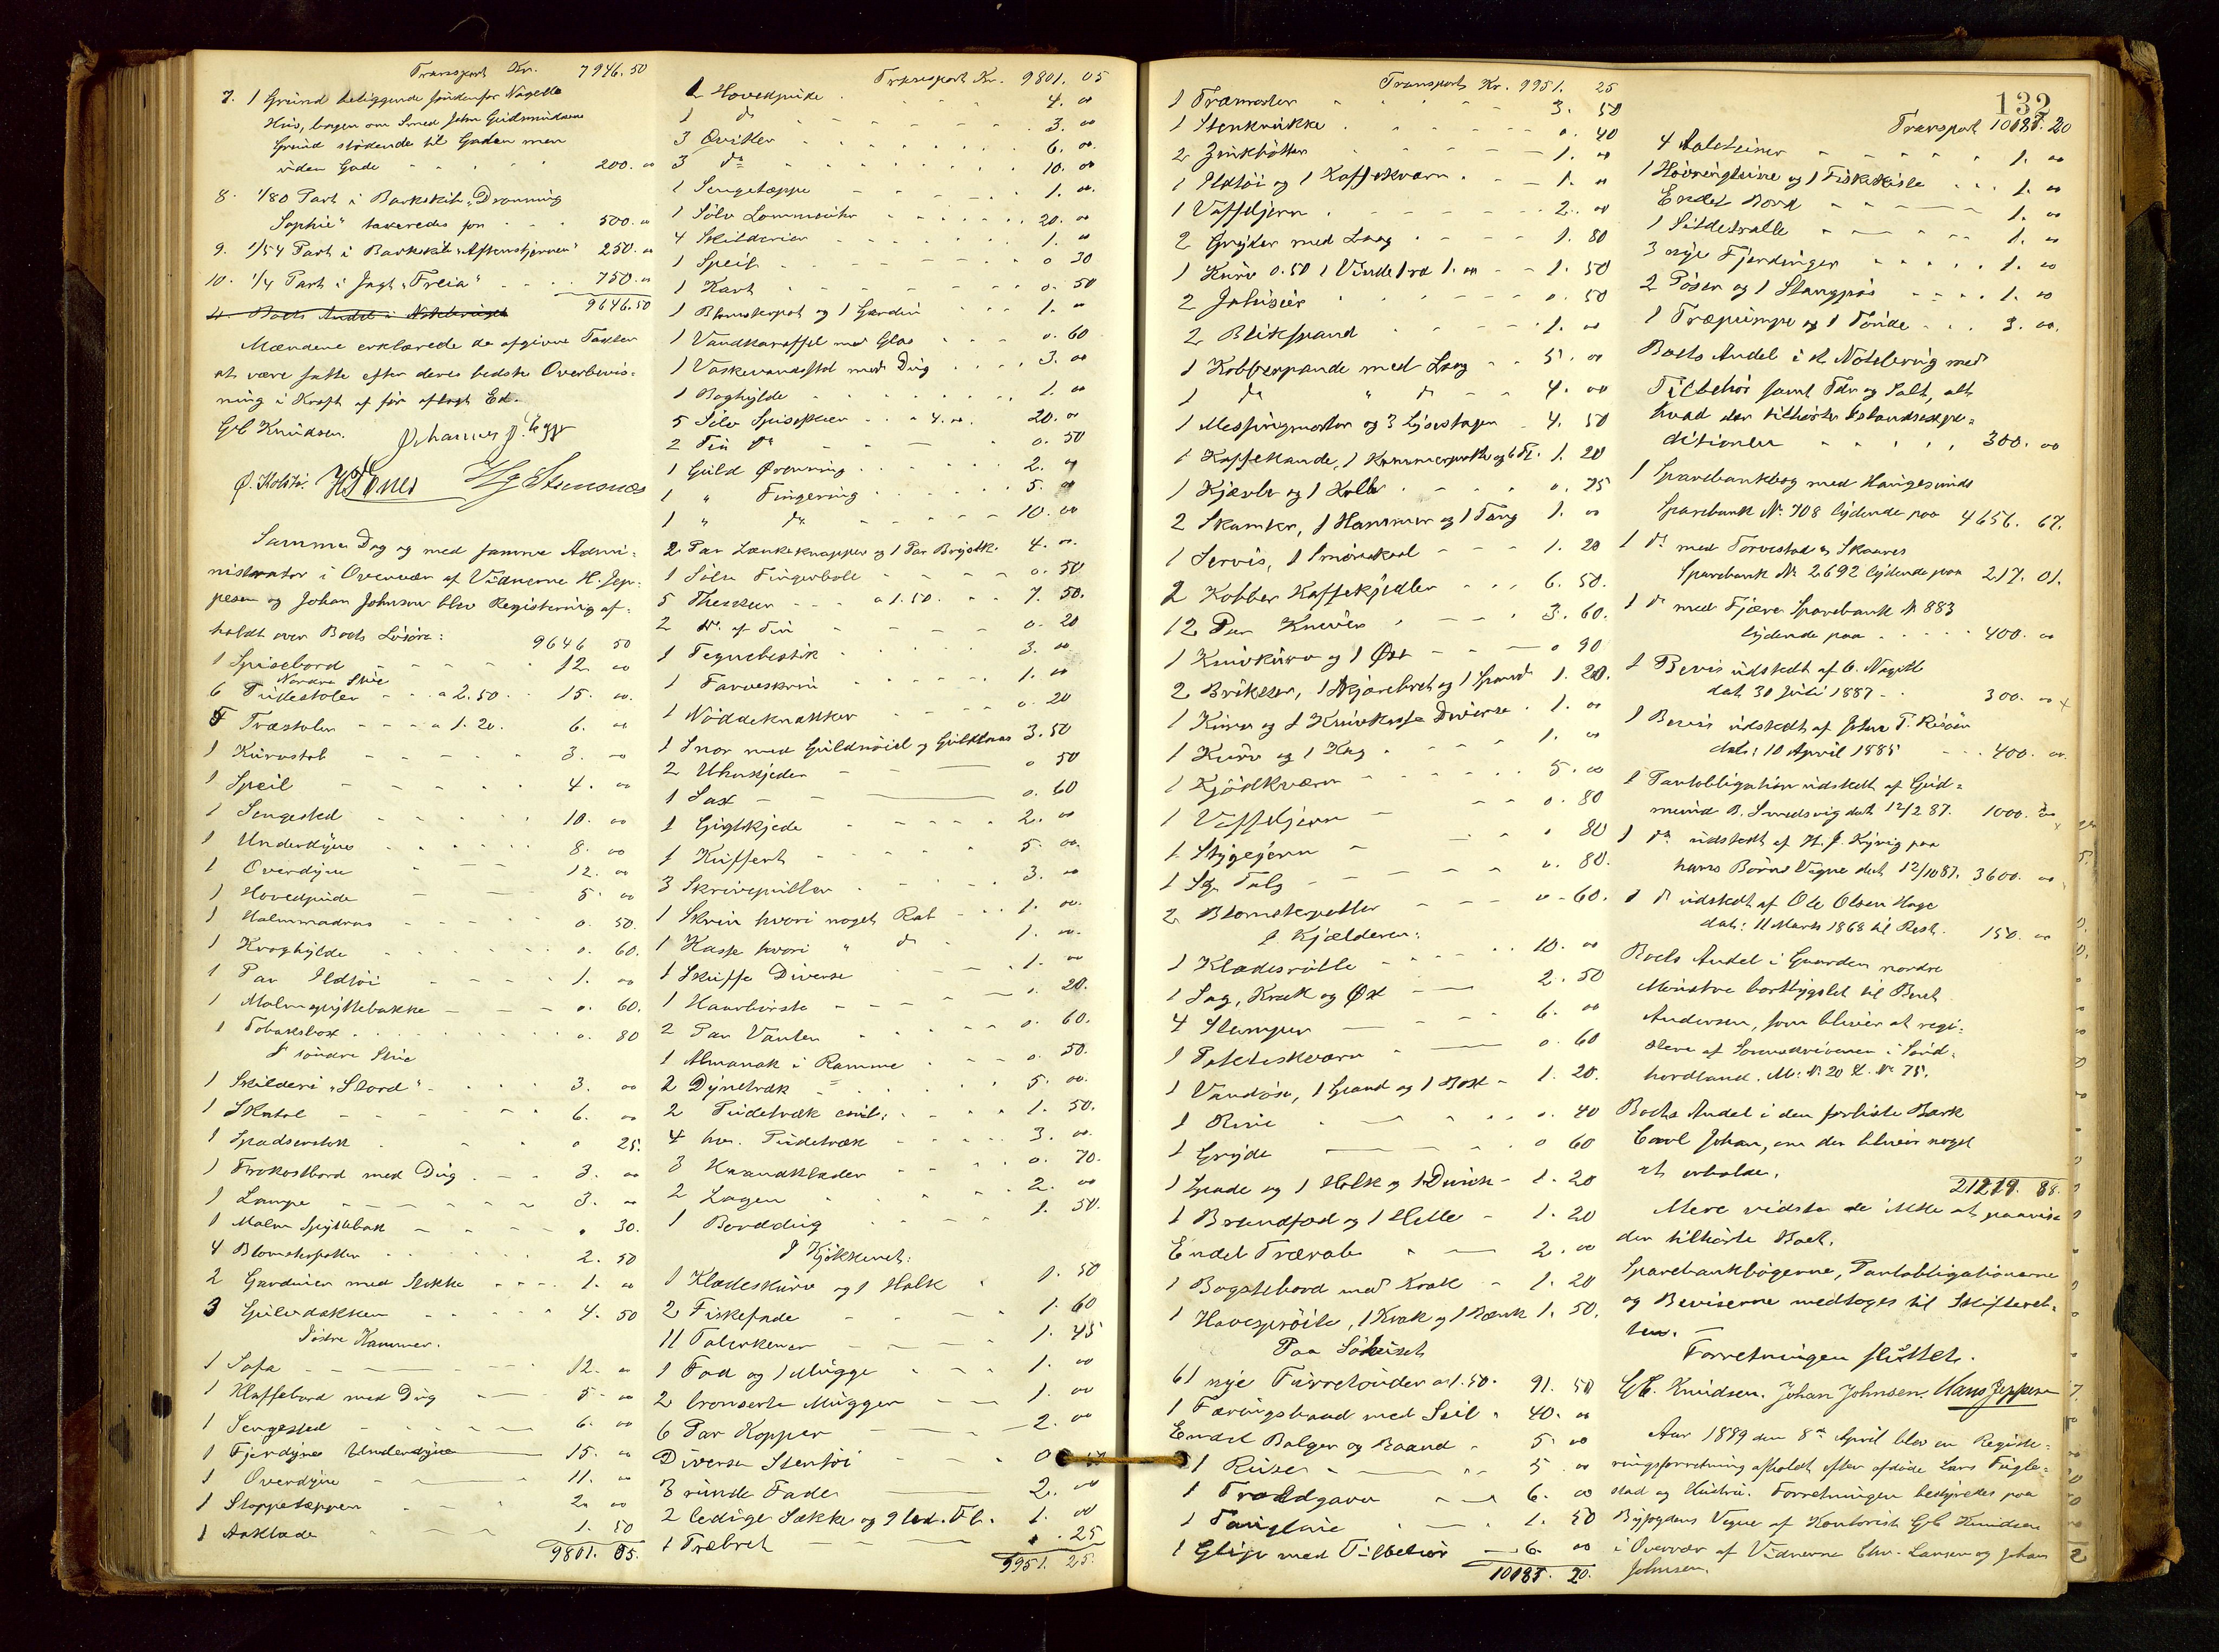 Transport Kr. 7946.50
7. 1 Grund beliggende søndenfor Nagells
Hus, bagen om Smed John Gudmundsens
Grund stødende til Gaden men
uden Gade 200. 00
8. 1/80 Part i Barkskib "Dronning
Sophie" taxeredes for 500. 00
9. 1/54 Part i Barkskib "Aftenstjernen" 250. 00
10. 1/4 Part i Jagt "Freia" 750. 00
9646.50
Mændene erklærede de afgivne Taxter
at være satte efter deres bedste Overbevis-
ning i Kraft af før aflagt Ed.
Gel Knudsen. Johannes J. Egge
Samme Dag og med samme Admi-
nistrator i Overvær af Vidnerne H. Jep-
pesen og Johan Johnsen blev Registrering af-
holdt over Boets Løsøre:
9646 50
1 Spisebord 12. 00
Nordre Stue
6 Pudestoler a 2.50 15. 00
5 Træstoler a 1.20. 6. 00
1 Kurvstol 3. 00
1 Speil 4. 00
1 Sengested 10. 00
1 Underdyne 8. 00
1 Overdyne 12. 00
1 Hovedpude 5. 00
1 Halmmadras 0. 50.
1 Kroghylde 0. 60.
1 Par Ildtøi 1. 00
1 Malmspyttebakke 0. 60.
1 Tobaksbox 0. 80
I søndre Stue
1 Skilderi "Stord" 3. 00
1 Skatol 6. 00
1 Spadserstok 0 25.
1 Frokostbord med Dug 3. 00
1 Lampe 3. 00
1 Malm Spyttebak 0 30.
4 Blomsterpotter 2. 50
2 Gardiner med Stokke 1. 00
3 Gulvdækken 4. 50
Søndre Kammer.
1 Sofa 12. 00
1 Klaffebord med Dug 5. 00
1 Sengested 6. 00
1 Fjerdyne Underdyne 15. 00
1 Overdyne 11. 00
1 Stoppetæppen 2. 00
1 Aaklæde 1. 50
9801. 05.
Transport Kr. 9801. 05
2 Hovedpude 4. 00
1 do 3. 00
3 Qvitler 6. 00.
3 do 10. 00
1 Sengetæppe 1. 00.
1 Sølv Lommeuhr 20. 00
4 Skilderier 1. 00
1 Speil 0 30
1 Kart 0. 50
1 Blomsterpot og 1 Gardin 1. 00
1 Vandkaraffel med Glas 0. 60
1 Vaskevandsstol med Dug 3. 00
1 Boghylde 1. 00
5 Sølv Spiseskeer a 4.00. 20. 00
2 Tin do 0. 50
1 Guld Ørenring 2. 00
1 " Fingering 5. 00
1 " do 10. 00
2 Par Lænkeknapper og 1 Par Brystk. 4. 00.
1 Sølv Fingerbøle 0. 50
5 Theskeer a 1.50. 7. 50.
2 do. af Tin 0. 20
1 Tegnebestik 3. 00
1 Farveskrin 1. 00
1 Nøddeknækker 0. 20
1 Snor med Guldnøiel og Guldlaas 3.50
2 Uhrkjeder 0 50
1 Sax 0. 60
1 Gigtkjede 2. 00
1 Kuffert 5. 00.
3 Skrivepulter 3. 00
1 Skrin hvori noget Rat 1. 00.
1 Kasse hvori " do 1. 00.
1 Skuffe Diverse 1. 00
1 Haarbørste 0. 20.
2 Par Vanter 0. 60.
1 Almanak i Ramme 0. 50.
2 Dynetræk 5. 00.
2 Pudetræk coul. 1. 50.
4 hv. Pudetræk 3. 00.
3 Haandklæder 0. 70.
2 Lagen 2. 00
1 Borddug 1. 50.
I Kjøkkenet.
1 Klædeskurv og 1 Holk 1. 50
2 Fiskefade 1. 60
11 Talerkener 1. 45
1 Fad og 1 Mugge 1. 00
2 bronserte Mugger 1. 00
6 Par Kopper 2. 00
Diverse Stentøi 0
3 runde Fade 2. 00
2 ledige Sække og 9 led. Fl. 1. 00
1 Træbret . 25
9951. 25.
Transport Kr. 9951. 25
1 Træmorter 3. 50
1 Stenkrukke 0. 40
2 Zinkbøtter 1. 00
1 Ildtøi og 1 Kaffekværn 1. 00
1 Vaffeljern 2. 00
2 Gryder med Laag 1. 80
1 Kurv 0.50 1 Vinde 1.00 1. 50
2 Jalusier 0. 50
2 Blikspand 1. 00
1 Kobberpande med Laag 5. 00
1 do " do 4. 00
1 Messingmorter og 3 Lysestager 4. 50
1 Kaffekande, 1 Kammerpotte og 6 Fl. 1. 20
1 Kjævle og 1 Kolle 0. 75
2 Skamler, 1 Hammer og 1 Tang 1. 00
1 Servis, 1 Smørskaal 1. 20
2 Kobber Kaffekjedler 6. 50.
12 Par Knive 3. 60.
1 Knivkurv og 1 Øse 0 90
2 Brikker, 1 Skjærebret og 1 Spand 1. 20.
1 Kurv og 1 Knivkasse Diverse 1. 00
1 Kurv og 1 Kag 1. 00
1 Kjødkværn 5. 00
1 Vaffeljern 0. 80
1 Strygejern 0 80
1 Sk. Talg 0. 80.
2 Blomsterpotter 0. 60.
I Kjælderen:
1 Klædesrulle 10. 00
1 Sag, Krak og Øx 2. 50
4 Stamper 6. 00
1 Potetiskværn 0. 60
1 Vandøse, 1 Spand og 1 Box 1. 20.
1 Rive 0. 40
1 Gryde 0 60
1 Spade og 1 Holk og 1 Dunk 1. 20
1 Brændfad og 1 Helle 1. 20
Endel Trærab 2. 00
1 Bagstebord med Krak 1. 20
1 Havesprøite, 1 Krak og 1 Bænk 1. 50.
Paa Søhuset
61 nye Furretønder a 1.50. 91. 50
1 Færingsbaad med Seil 40. 00
Endel Balger og Baand 5 00
1 Ruser 5. 00
1 Troldgarn 6. 00
1 Tougline 1. 50
1 Glip med Tilbehør 6. 00
10185. 20.
132
Transport 10185. 20
4 Aaleteiner 1. 00
1 Hovringteine og 1 Fiskekiste 1. 00
Endel Bord 1. 00
1 Sildetralle 1. 00
3 nye Fjerdinger 1. 00
2 Pøser og 1 Stangpøs 1. 00
1 Træpumpe og 1 Tønde 3. 00.
Boets Andel i et Notebrug med
Tilbehør samt Tdr og Salt, alt
hvad der tilhører Islandsexpe-
ditionen 300. 00
1 Sparebankbog med Haugesunds
Sparebank No 708 lydende paa 4656. 67.
1 do med Torvestad og Skaares
Sparebank No 2692 lydende paa 217. 01.
1 do med Fjære Sparebank N 883
lydende paa 400. 00
1 Bevis udstedt af C. Nagell
dat. 30 Juli 1887 300. 00 x
1 Bevis udstedt af John T. Risøen
dat: 10 April 1885 400. 00
1 Pantobligation udstedt af Gud-
mund B. Smedsvig dat 12/2 87. 1000. 00
1 do udstedt af H. J. Kyvig paa
hans Børns Vegne dat 12/10 87. 3600. 00
1 do udstedt af Ole Olsen Hage
dat: 11 Marts 1868 til Rest. 150. 00
Boets Andel i Gaarden nordre
Mønstre bortbygslet til Bert
Andersen, som bliver at regi-
strere af Sorenskriveren i Sønd-
hordland. M: N: 20 L. No 75.
Boets Andel i den forliste Bark
Carl Johan, om der bliver noget
at erholde.
21219. 88.
Mere vidste de ikke at paavise
der tilhørte Boet.
Sparebankbøgerne, Pantobligationerne
og Beviserne medtoges til Skifteret-
ten.
Forretningen sluttet.
Gel. Knudsen. Johan Johnsen. Hans Jeppesen
Aar 1889 den 8de April blev en Registe-
ringsforretning afholdt efter afdøde Lars Fugle-
stad og Hustru. Forretningen bestyredes paa
Byfogdens Vegne af Kontorist Gel Knudsen
i Overvær af Vidnerne Chr. Larsen og Johan
Johnsen.